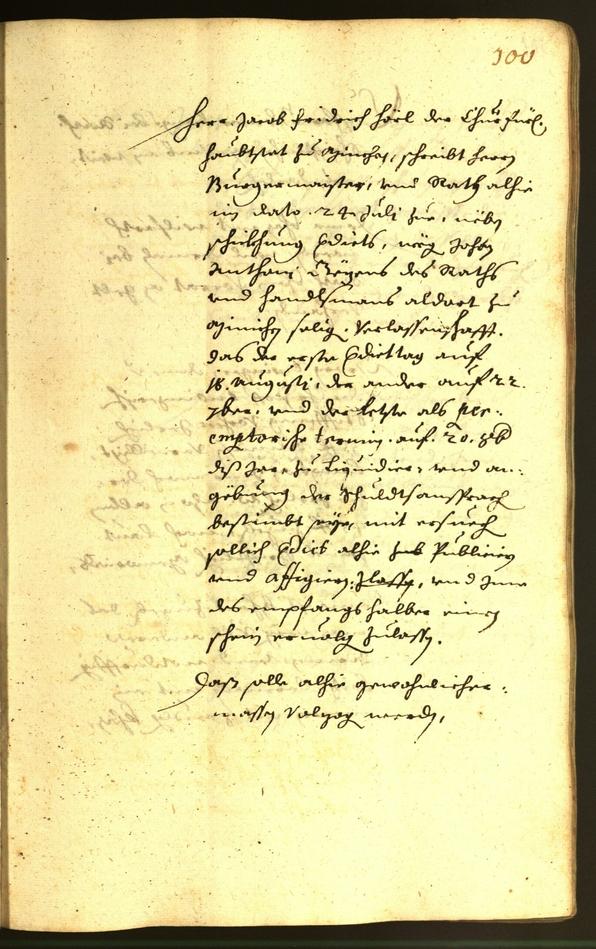 100
Herr Jacob Fridrich Hörl der Churfürl:
haubtstat zu München, schreibt herrn
Burgermaister, und Rath alhie
im dato 24 Juli zue, neben
schickhung Edicts, weg Johan
Anthoni des Raths
und handlsmans aldort zu
München selig. Verlassenschafft.
das der erste Edicttag auf
18. Augusti, der ander auf 22.
7ber, und der letste als per:
emptorische termin auf 20. 8ber
diß Jars zu liquidiern, und an:
gebung der schuldtsansprach
bestimbt seye, mit ersuech
sollich Edict alhie zu Publiciern
und affigiern zlassen, und Ime
des empfangs halber einen
schein ervolgen zulassen.
Daß solle alhie gewohnlicher:
massen volzogen werden,